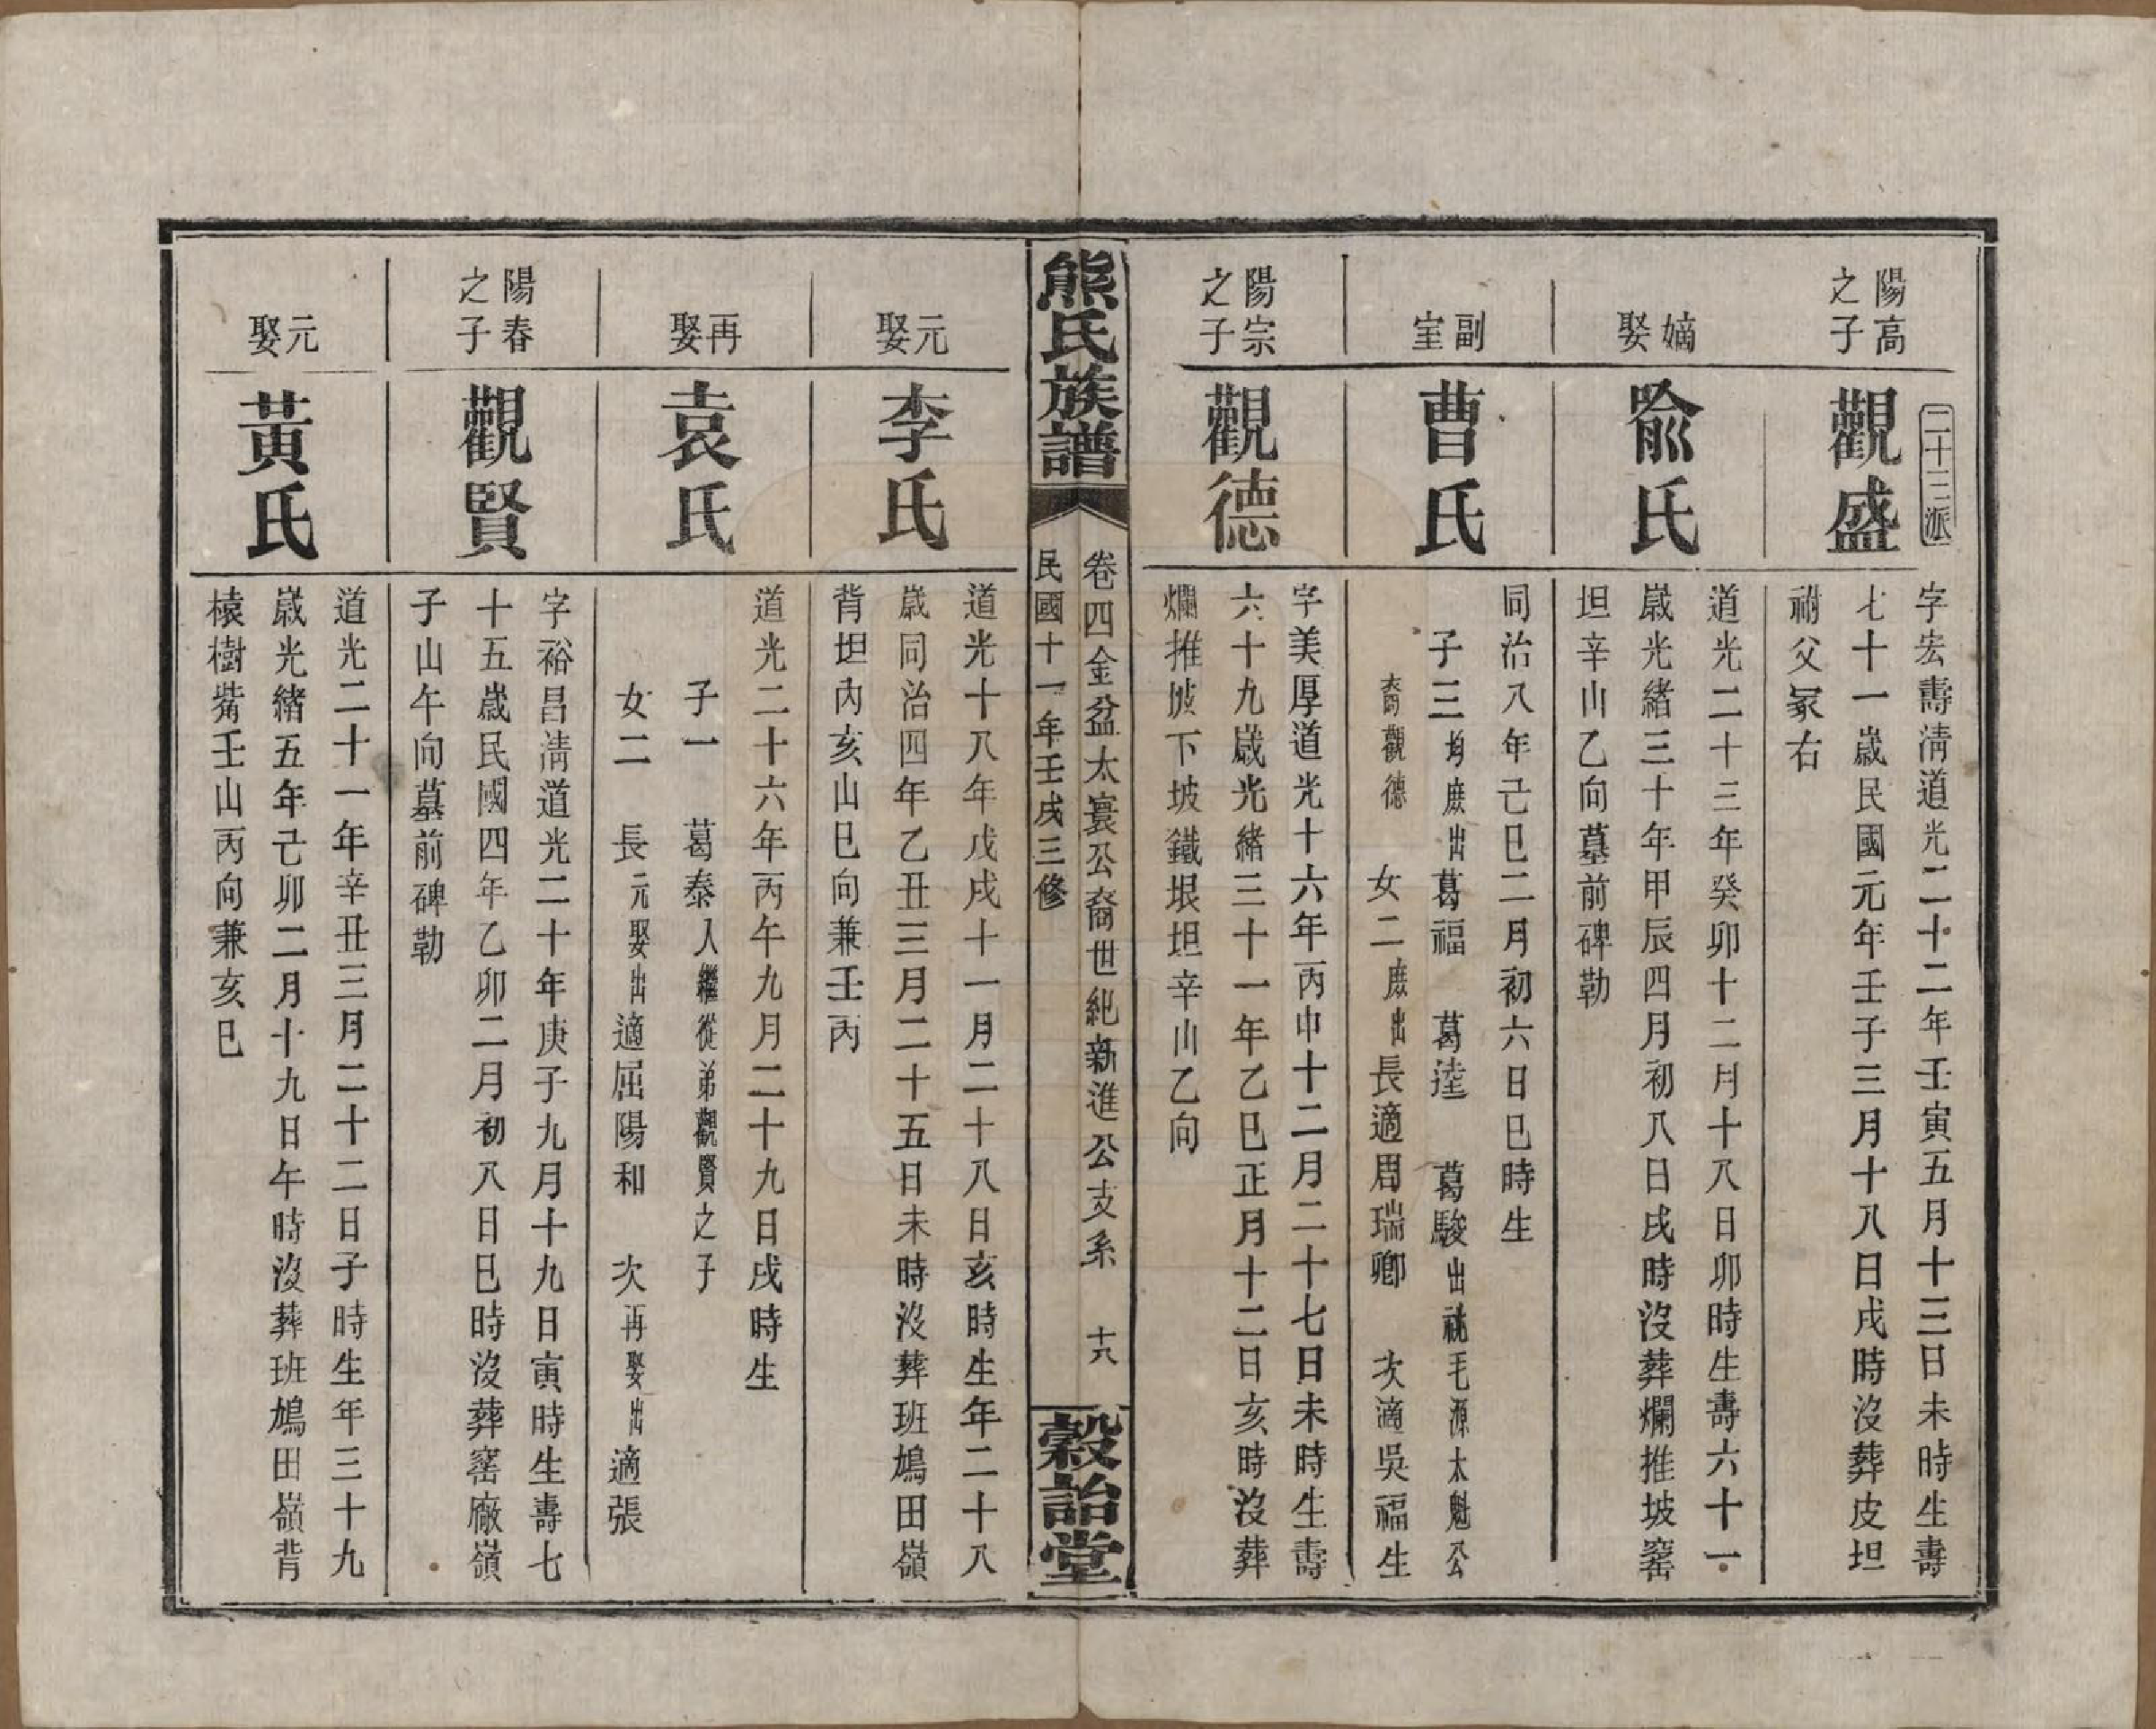 陽高
之子
二十三派
觀盛
字宏壽清道光二十二年壬寅五月十三日未時生壽
七十一歲民國元年壬子三月十八日戌時沒葬皮坦
祔父冢右
嫡娶
俞氏
道光二十三年癸卯十二月十八日卯時生壽六十一
歲光緒三十年甲辰四月初八日戌時沒葬爛推坡窰
坦辛山乙向墓前碑勒
副室
曹氏
同治八年己巳二月初六日巳時生
子三均庶出葛福　葛逵　葛駿出祧毛源太魁公
裔觀德　女二庶出長適周瑞卿　次適吳福生
陽宗
之子
觀德
字美厚道光十六年丙申十二月二十七日未時生壽
六十九歲光緒三十一年乙巳正月十二日亥時沒葬
爛推坡下坡鐵垠坦辛山乙向
熊氏族譜
卷四金盆太寰公裔世紀新進公支系　十八
民國十一年壬戌三修
穀詒堂
元娶
李氏
道光十八年戊戌十一月二十八日亥時生年二十八
歲同治四年乙丑三月二十五日未時沒葬班鳩田嶺
背坦內亥山巳向兼壬丙
再娶
袁氏
道光二十六年丙午九月二十九日戌時生
子一　葛泰入繼從弟觀賢之子
女二　長元娶出適屈陽和　次再娶出適張
陽春
之子
觀賢
字裕昌清道光二十年庚子九月十九日寅時生壽七
十五歲民國四年乙卯二月初八日巳時沒葬窰廠嶺
子山午向墓前碑勒
元娶
黃氏
道光二十一年辛丑三月二十二日子時生年三十九
歲光緒五年己卯二月十九日午時沒葬班鳩田嶺背
榬樹觜壬山丙向兼亥巳